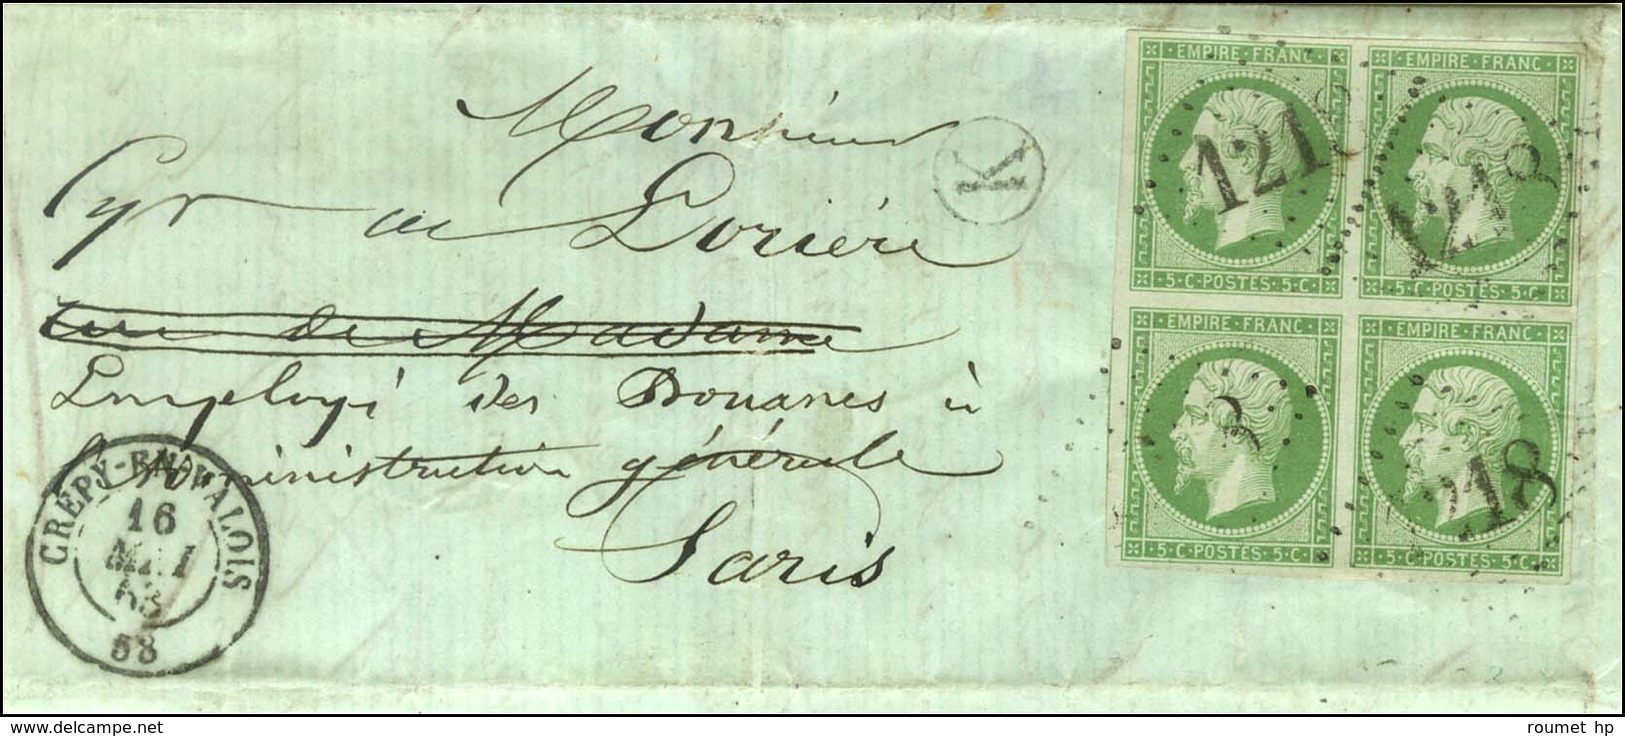 Monsieur
Cyr de Lorière
rue de Madame
Employé des Douanes à
l'Administration générale
Paris
K
CRÉPY-EN-VALOIS
16
MAI
63
58
EMPIRE · FRANC ·
5 · C · POSTES · 5 · C
1218
EMPIRE · FRANC ·
5 · C · POSTES · 5 · C
1218
EMPIRE · FRANC ·
5 · C · POSTES · 5 · C
EMPIRE · FRANC ·
5 · C · POSTES · 5 · C
218
www.delcampe.net
roumet hp